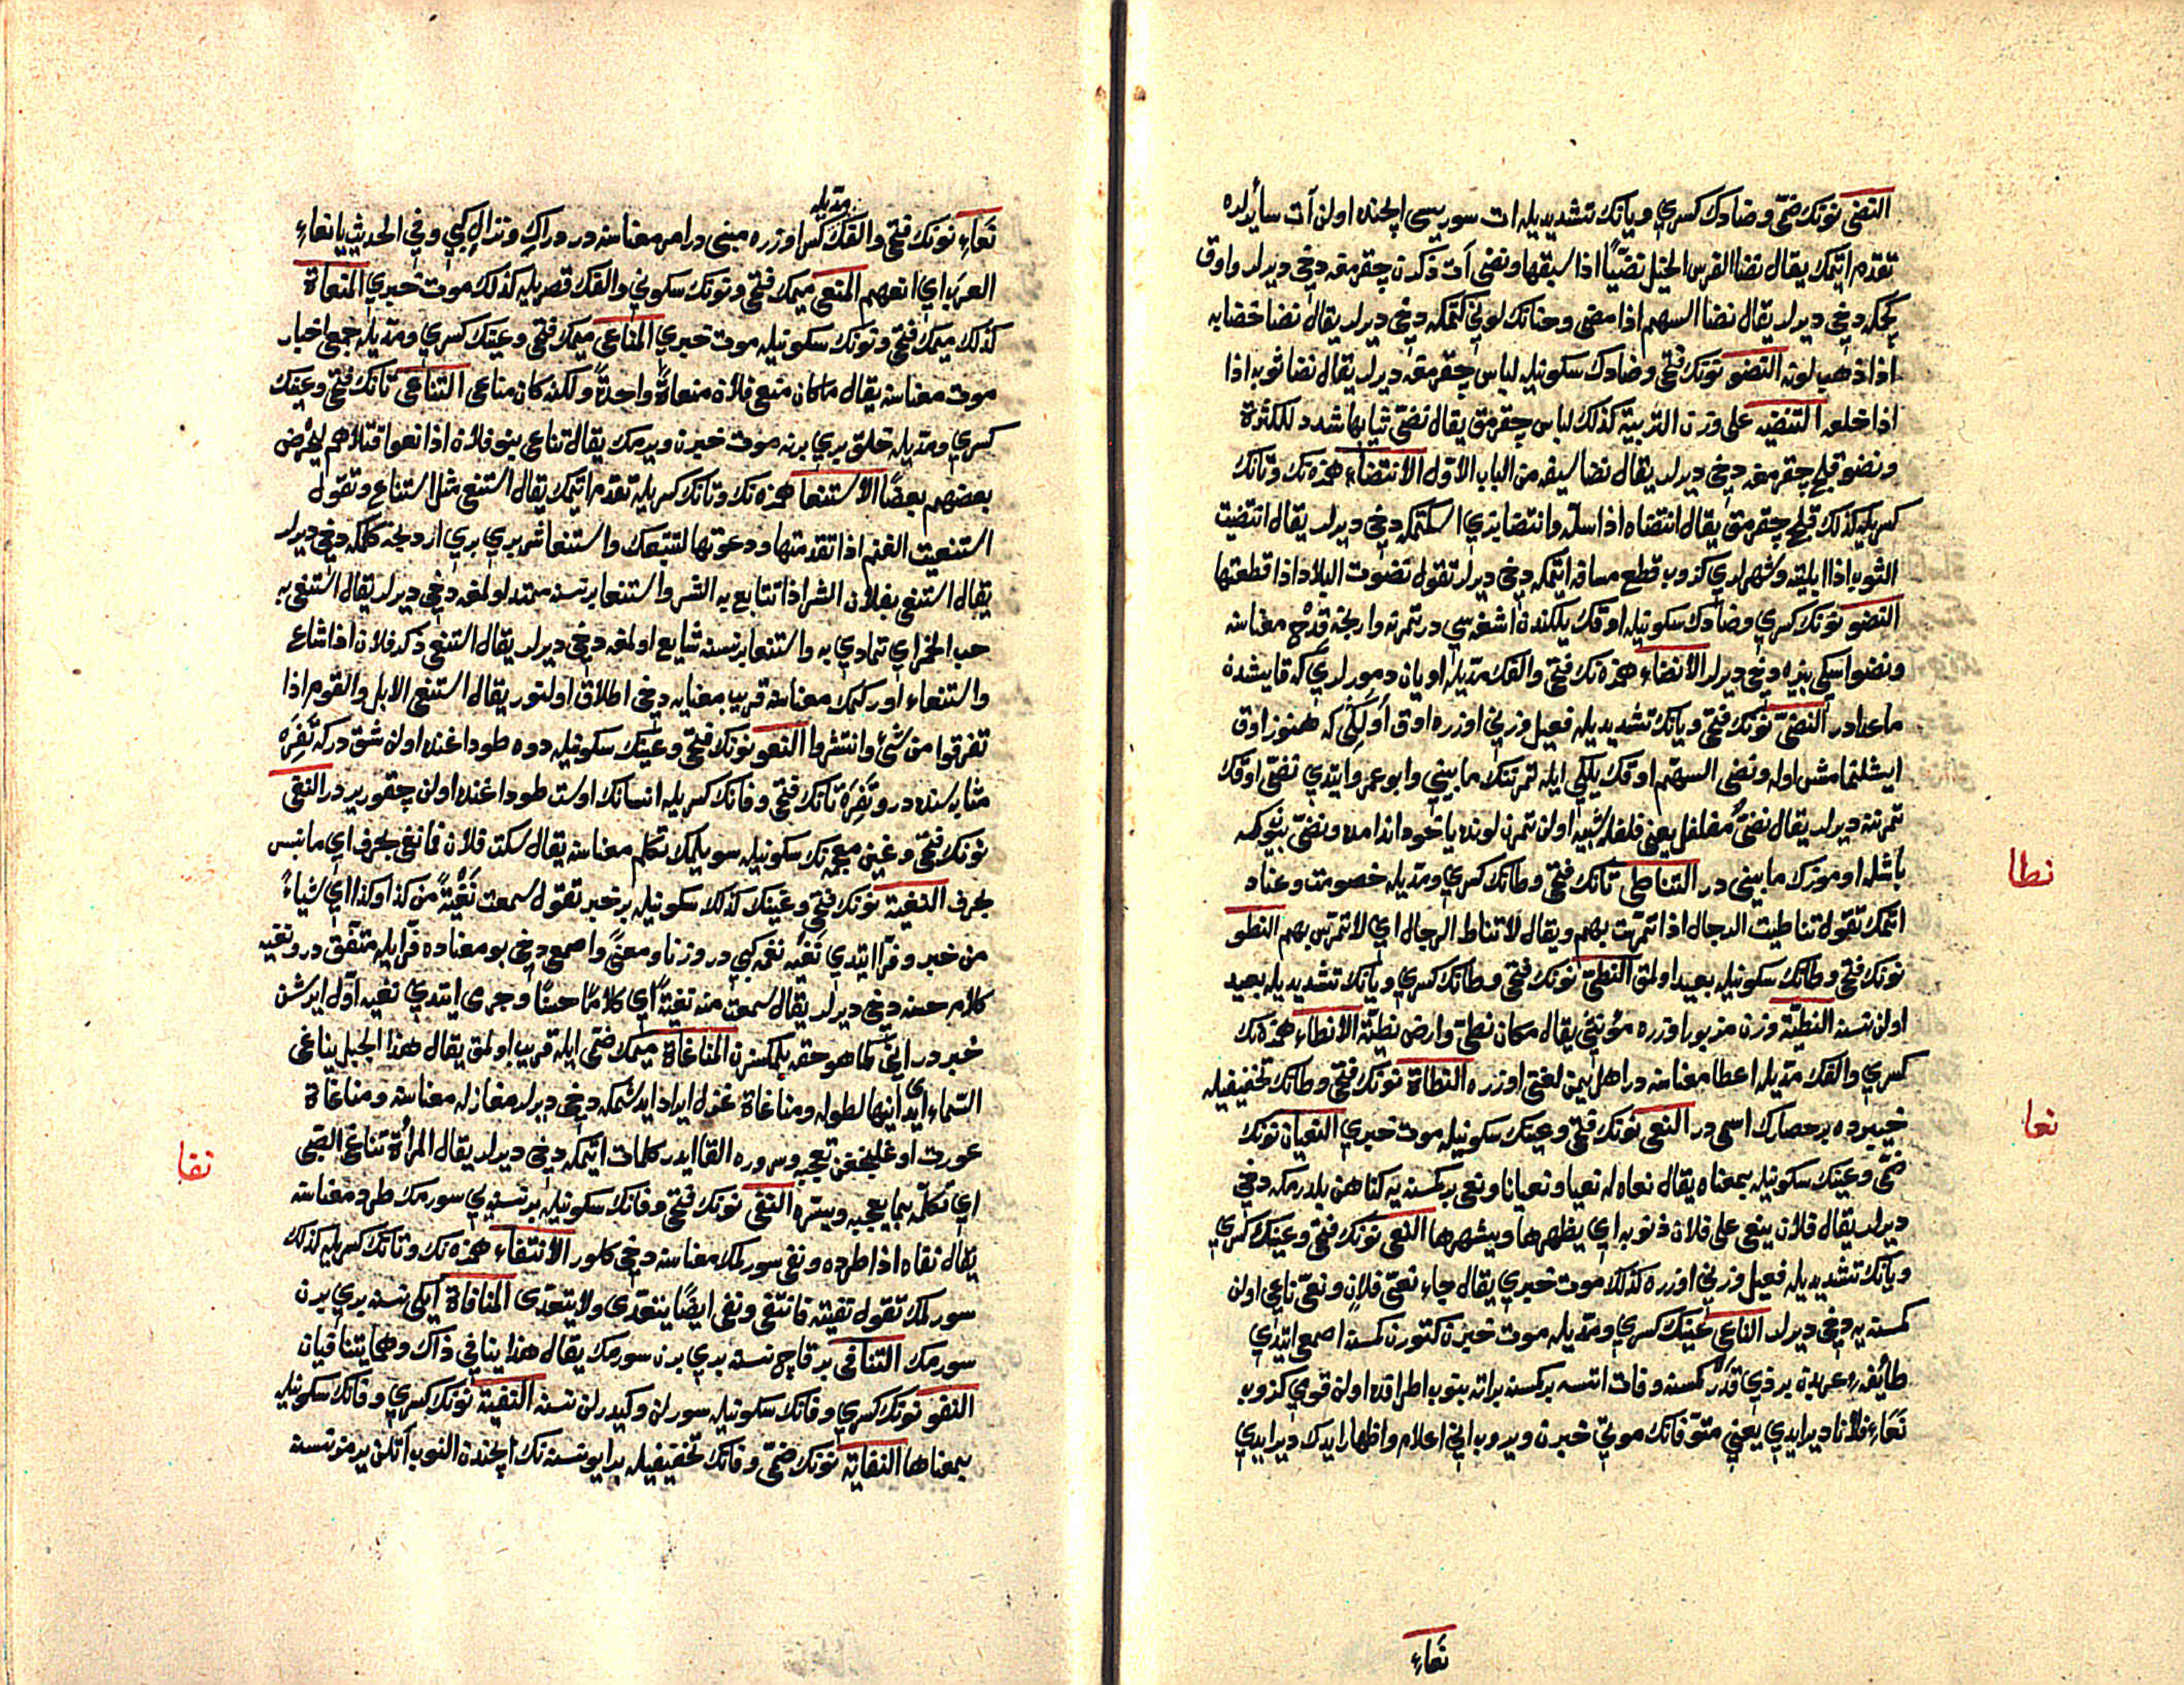 النضی نونك ضمی و ضادك كسری و یانك تشدیدیله ات سوریسی ایچنده اولن آت سایرلره
تقدم اتمك یقال نضا الفرس الخیل نضیًّا اذا سبقها و نضی آت ذكرن چقرمغه دخی دیرلر و اوق
كچمكه دخی دیرلر یقال نضا السهم اذا مضی و حنانك لونی كتمكه دخی دیرلر یقال نضا خضابه
اذا ذهب لونه النضو نونك فتحی و ضادك سكونیله لباس چقرمق دیرلر یقال نضا ثوبه اذا
اذا خلعه التنضیه علی وزن التربیة كذلك لباس چقرمق یقال نضّی ثیابها شدد للكثرة
و نضو قلج چقرمغه دخی دیرلر یقال نضا سیفه من الباب الاول الانتضاء همزه نك و تانك
كسریله كذلك قلج چقرمق یقال انتضاه اذا سله و انتضا بزی اسكتمكه دخی دیرلر یقال انتضیت
الثوب اذا ابلیته و شهرلری كزوب قطع مسافه اتمكه دخی دیرلر تقول نضوت البلاد اذا قطعتها
النضو نونك كسری و ضادك سكونیله اوقك یلكندن اشغه سی در تمرنه وارنجه قدح معناسنه
و نضو اسكی بزه دخی دیرلر الانضاء همزه نك فتحی و الفك مدیله اویان دمورلری كه قایشدن
ماعدادر النضیّ نونك فتحی و یانك تشدیدیله فعیل وزنی اوزره اوق اولكی كه هنوز اوق
ایشلنمامش اوله و نضی السهم اوقك یلكی ایله تمرتنك مابینی و ابو عمرو ایتدی نضیّ اوقك
تمرتنه دیرلر یقال نضیٌّ مفلفل یعنی فلفله شبیه اولن تمرن لونده یا خود اندامده و نضیّ بیوكسه
باشله اوموزك مابینی در التناطی تانك فتحی و طانك كسری و مدیله خصومت و عناد
اتمك تقول تناطیت الرجال اذا تمرّست بهم و یقال لا تناط الرجال ای لا تتمرّس بهم النطو
نونك فتحی و طانك سكونیله بعید اولمق النطیّ نونك فتحی و طانك كسری و یانك تشدیدیله بعید
اولن نسنه النطیّة وزن مزبور اوزره مؤنثی یقال مكان نطیّ و ارض نطیّة الانطاء همزه نك
كسری و الفك مدیله اعطا معناسنه در اهل یمن لغتی اوزره النطاة نونك فتحی و طانك تخفیفیله
خیبرده بر حصارك اسمی در النعی نونك فتحی و عینك سكونیله موت خبری النعیان نونك
ضمی و عینك سكونیله بمعناه یقال نعاه له نعیا و نعیانا و نعی بر كسنه یه كناهن بلدرمكه دخی
دیرلر یقال فلان ینعی علی فلان ذنوبه ای یظهرها و یشهرها النعی نونك فتحی و عینك كسری
و یانك تشدیدیله فعیل وزنی اوزره كذلك موت خبری یقال جاء نعیّ فلان و نعیّ ناعی اولن
كمسنه یه دخی دیرلر الناعی عینك كسری و مدیله موت خبرن كتورن كمسنه اصمعی ایتدی
طائفه ء عربدن بر ذی قدر كمسنه وفات اتسه بر كسنه بر اته بنوب اطرافده اولن قومی كزوب
نعاءِ فلانا دیر ایدی یعنی متوفانك موتی خبرن ویروب انی اعلام و اظهار ایدك دیر ایدی
نعاءِ
نطا
نعا
نعاءِ نونك فتحی و الفك مدیله كسر اوزره مبنی در امر معناسنه در دراكِ و نزالِ كبی و فی الحدیث یا نعاءِ
العرب ای انعهم المنعی میمك فتحی و نونك سكونی و الفك قصریله كذلك موت خبری المنعاة
كذلك میمك فتحی و نونك سكونیله موت خبری المناعی میمك فتحی و عینك كسری و مدیله جمعی اخبار
موت معناسنه یقال ما كان منعی فلان منعاةً واحدةً و لكنه كان مناعی التناعی تانك فتحی و عینك
كسری و مدیله خلق بری برنه موت خبرن ویرمك یقال تناعی بنو فلان اذا نعوا قتلاهم لیحرّض
بعضهم بعضًا الاستنعا همزه نك و تانك كسریله تقدم اتمك یقال استنعی مثل استناع و تقول
استنعیت الغنم اذا تقدمتها و دعوتها لتتبعك و استنعا شر بری بری اردنجه كلمكه دخی دیرلر
یقال استنعی بفلان الشر اذا تتابع به الشر و استنعا بر نسنه ممتد اولمغه دخی دیرلر یقال استنعی به
حب الخمر ای تمادی به و استنعا بر نسنه شایع اولمغه دخی دیرلر یقال استنعی ذكر فلان اذا شاع
و استنعاء اوركمك معناسنه قریب معنایه دخی اطلاق اولنور یقال استنعی الابل و القوم اذا
تفرقوا من شئ و انتشروا النعو نونك فتحی و عینك سكونیله دوه طوداغنده اولن شق دركه تَفِرَه
مثابه سنده در و تَفِرَة تانك فتحی و فانك كسریله انسانك اوست طوداغنده اولن چقور یردر النغی
نونك فتحی و غین معجمه نك سكونیله سویلمك تكلم معناسنه یقال سكت فلان فما نغی بحرف ای ما نبس
بحرف النغیة نونك فتحی و غینك كذلك سكونیله بر خبر تقول سمعت نَغْیَةً من كذا و كذا ای شیاءً
من خبر و فرّا ایتدی نَغْیَه نغمه كبی در وزنا و معنًی و اصمعی دخی بو معناده فرّا ایله متفق در و نغیه
كلام حسنه دخی دیرلر یقال سمعت منه نغیةً ای كلامًا حسنًا و جرمی ایتدی نغیه اول ایرشن
خبردر انی كما هو حقه بلمكسزن المناغاة میمك ضمی ایله قریب اولمق یقال هذا الجبل یناغی
السّماء ای یدانیها لطوله و مناغاة غزل ایراد ایدشمكه دخی دیرلر مغازله معناسنه و مناغاة
عورت اوغلنجغن تعجیبه و سروره القا ایدر كلمات اتمكه دخی دیرلر یقال المرأة تناغی الصّبی
ای تكلّمه بما یعجبه و یسرّه النفی نونك فتحی و فانك سكونیله بر نسنه یی سورمك طرد معناسنه
یقال نفاه اذا طرده و نفی سورلمك معناسنه دخی كلور الانتفاء همزه نك و تانك كسریله كذلك
سورلمك تقول نفیته فانتفی و نفی ایضًا یتعدّی و لا یتعدّی المنافاة ایكی نسنه بری برن
سورمك التنافی بر قاچ نسنه بری برن سورمك یقال هذا ینافی ذاك و هما یتنافیان
النفو نونك كسری و فانك سكونیله سورلن و كیدرلن نسنه النفیة نونك كسری و فانك سكونیله
بمعناها النفایة نونك ضمی و فانك تخفیفیله بر ایو نسنه نك ایچندن النوب آتلن یرمز نسنه
نفا